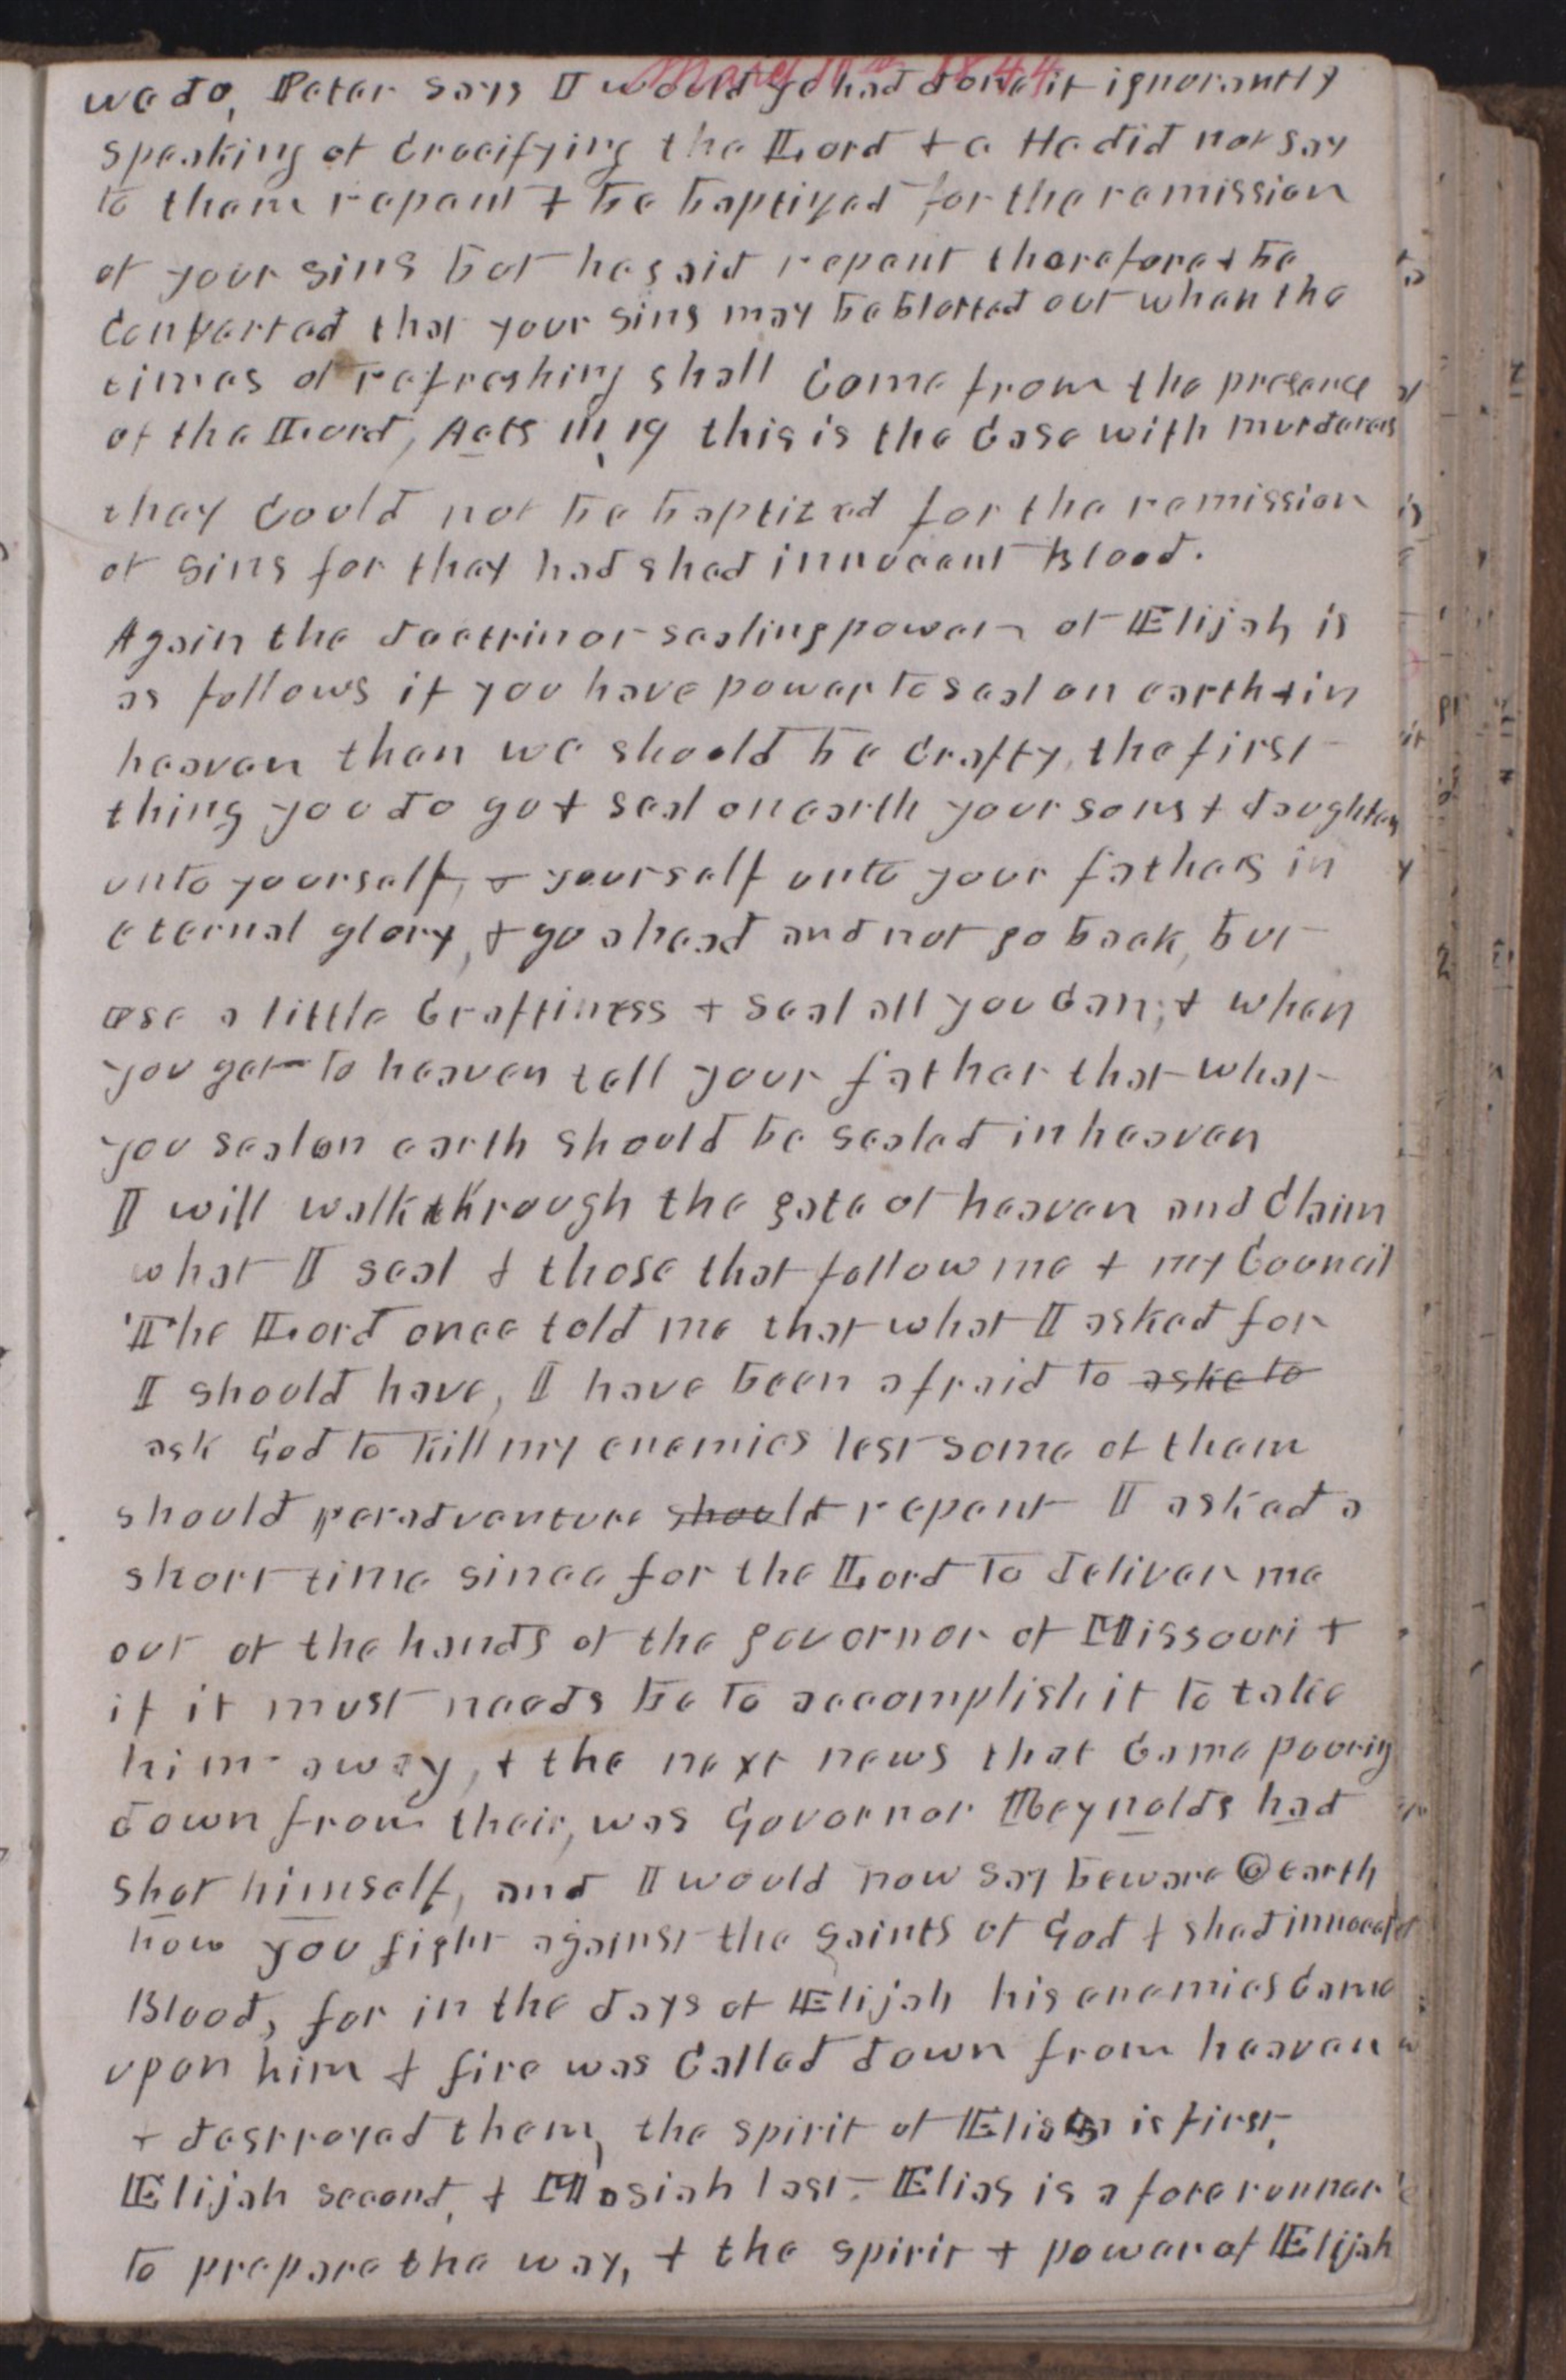 March 10th 1844
we do, Peter says I would ye had done it ignorantly
speaking of Crucifying the Lord &c He did not say
to them repent & be baptized for the remission
of your sins but he said repent therefore & be
Converted that your sins may be blotted out when the
times of refreshing shall Come from the presence
of the Lord, Acts III, 19 this is the Case with murderers
they Could not be baptized for the remission
of sins for they had shed innocent Blood.
Again the doctrin or sealing power of Elijah is
as follows if you have power to seal on earth & in
heaven then we should be Crafty, the first
thing you do go & seal on earth your sons & daughters
unto yourself, & yourself unto your fathers in
eternal glory, & go ahead and not go back, but
use a little Craftiness & seal all you Can; & when
you get to heaven tell your father that what
you seal on earth should be sealed in heaven
I will walk through the gate of heaven and Claim
what I seal & those that follow me & my Council
The Lord once told me that what I asked for
I should have, I have been afraid to aske to
ask God to kill my enemies lest some of them
should peradventure should repent I asked a
short time since for the Lord to deliver me
out of the hands of the governor of Missouri &
if it must needs be to accomplish it to take
him away, & the next news that Came pouring
down from their, was Governor Reynolds had
shot himself, and I would now say beware O earth
how you fight against the saints of God & shed innocent
Blood, for in the days of Elijah his enemies Came
upon him & fire was Called down from heaven
& destroyed them, the spirit of Elias is first,
Elijah second, & Mesiah last. Elias is a fore runner
to prepare the way, & the spirit & power of Elijah